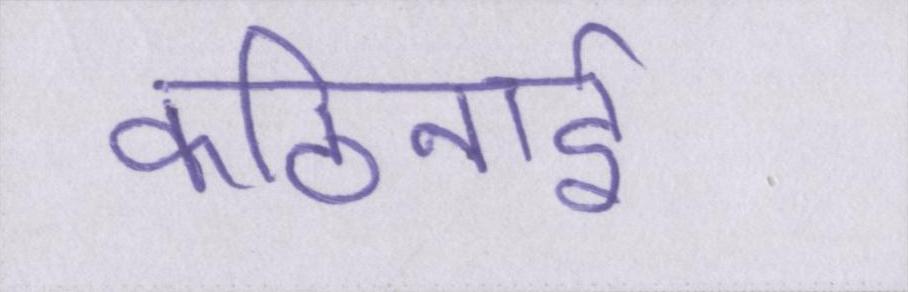 कठिनाई